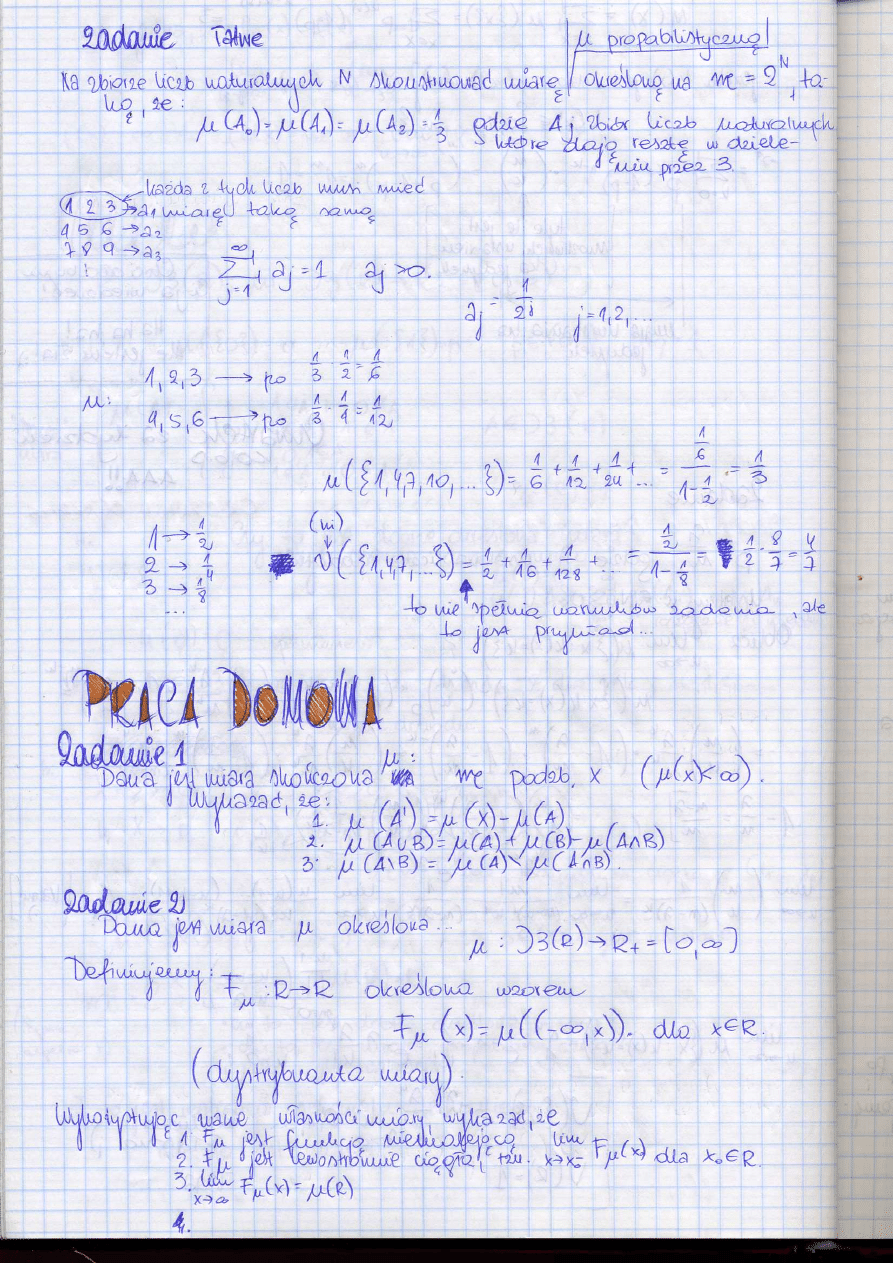 Zadanie łatwe
μ propabilistyczną
Na zbiorze liczb naturalnych N skonstruować miarę określoną na 𝔐 = 2^N, ta-
ką, że:
μ(A₀) = μ(A₁) = μ(A₂) = 1/3 gdzie Aj zbiór liczb naturalnych
które dają resztę w dziele-
niu przez 3.
każda z tych liczb musi mieć
1 2 3 → a₁ miarę taką samą
4 5 6 → a₂
7 8 9 → a₃
⋮
∑_{j=1}^{∞} aj = 1 aj > 0.
aj = 1/2^j j = 1,2,...
μ:
1, 2, 3 → po 1/3 · 1/2 = 1/6
4, 5, 6 → po 1/3 · 1/4 = 1/12
μ({1,4,7,10,...}) = 1/6 + 1/12 + 1/24 + ... = (1/6)/(1-1/2) = 1/3
1 → 1/2
2 → 1/4
3 → 1/8
...
(ni)
↓
ν({1,4,7,...}) = 1/2 + 1/16 + 1/128 + ... = (1/2)/(1-1/8) = 1/2 · 8/7 = 4/7
to nie spełnia warunków zadania, ale
to jest przykład...
PRACA DOMOWA
Zadanie 1
Dana jest miara skończona μ: 𝔐 podzb. X (μ(X)<∞).
Wykazać, że:
1. μ(A') = μ(X) - μ(A)
2. μ(A∪B) = μ(A) + μ(B) - μ(A∩B)
3. μ(A\B) = μ(A) \ μ(A∩B).
Zadanie 2
Dana jest miara μ określona...
μ : B(R) → R₊ = [0,∞]
Definiujemy:
Fμ : R→R określona wzorem
Fμ(x) = μ((-∞,x)). dla x∈R.
(dystrybuanta miary).
Wykorzystując własności miary, wykazać, że
1. Fμ jest funkcją niemalejącą
2. Fμ jest lewostronnie ciągła, tzn. lim x→x₀⁻ Fμ(x) dla x₀∈R.
3. lim x→∞ Fμ(x) = μ(R)
4.